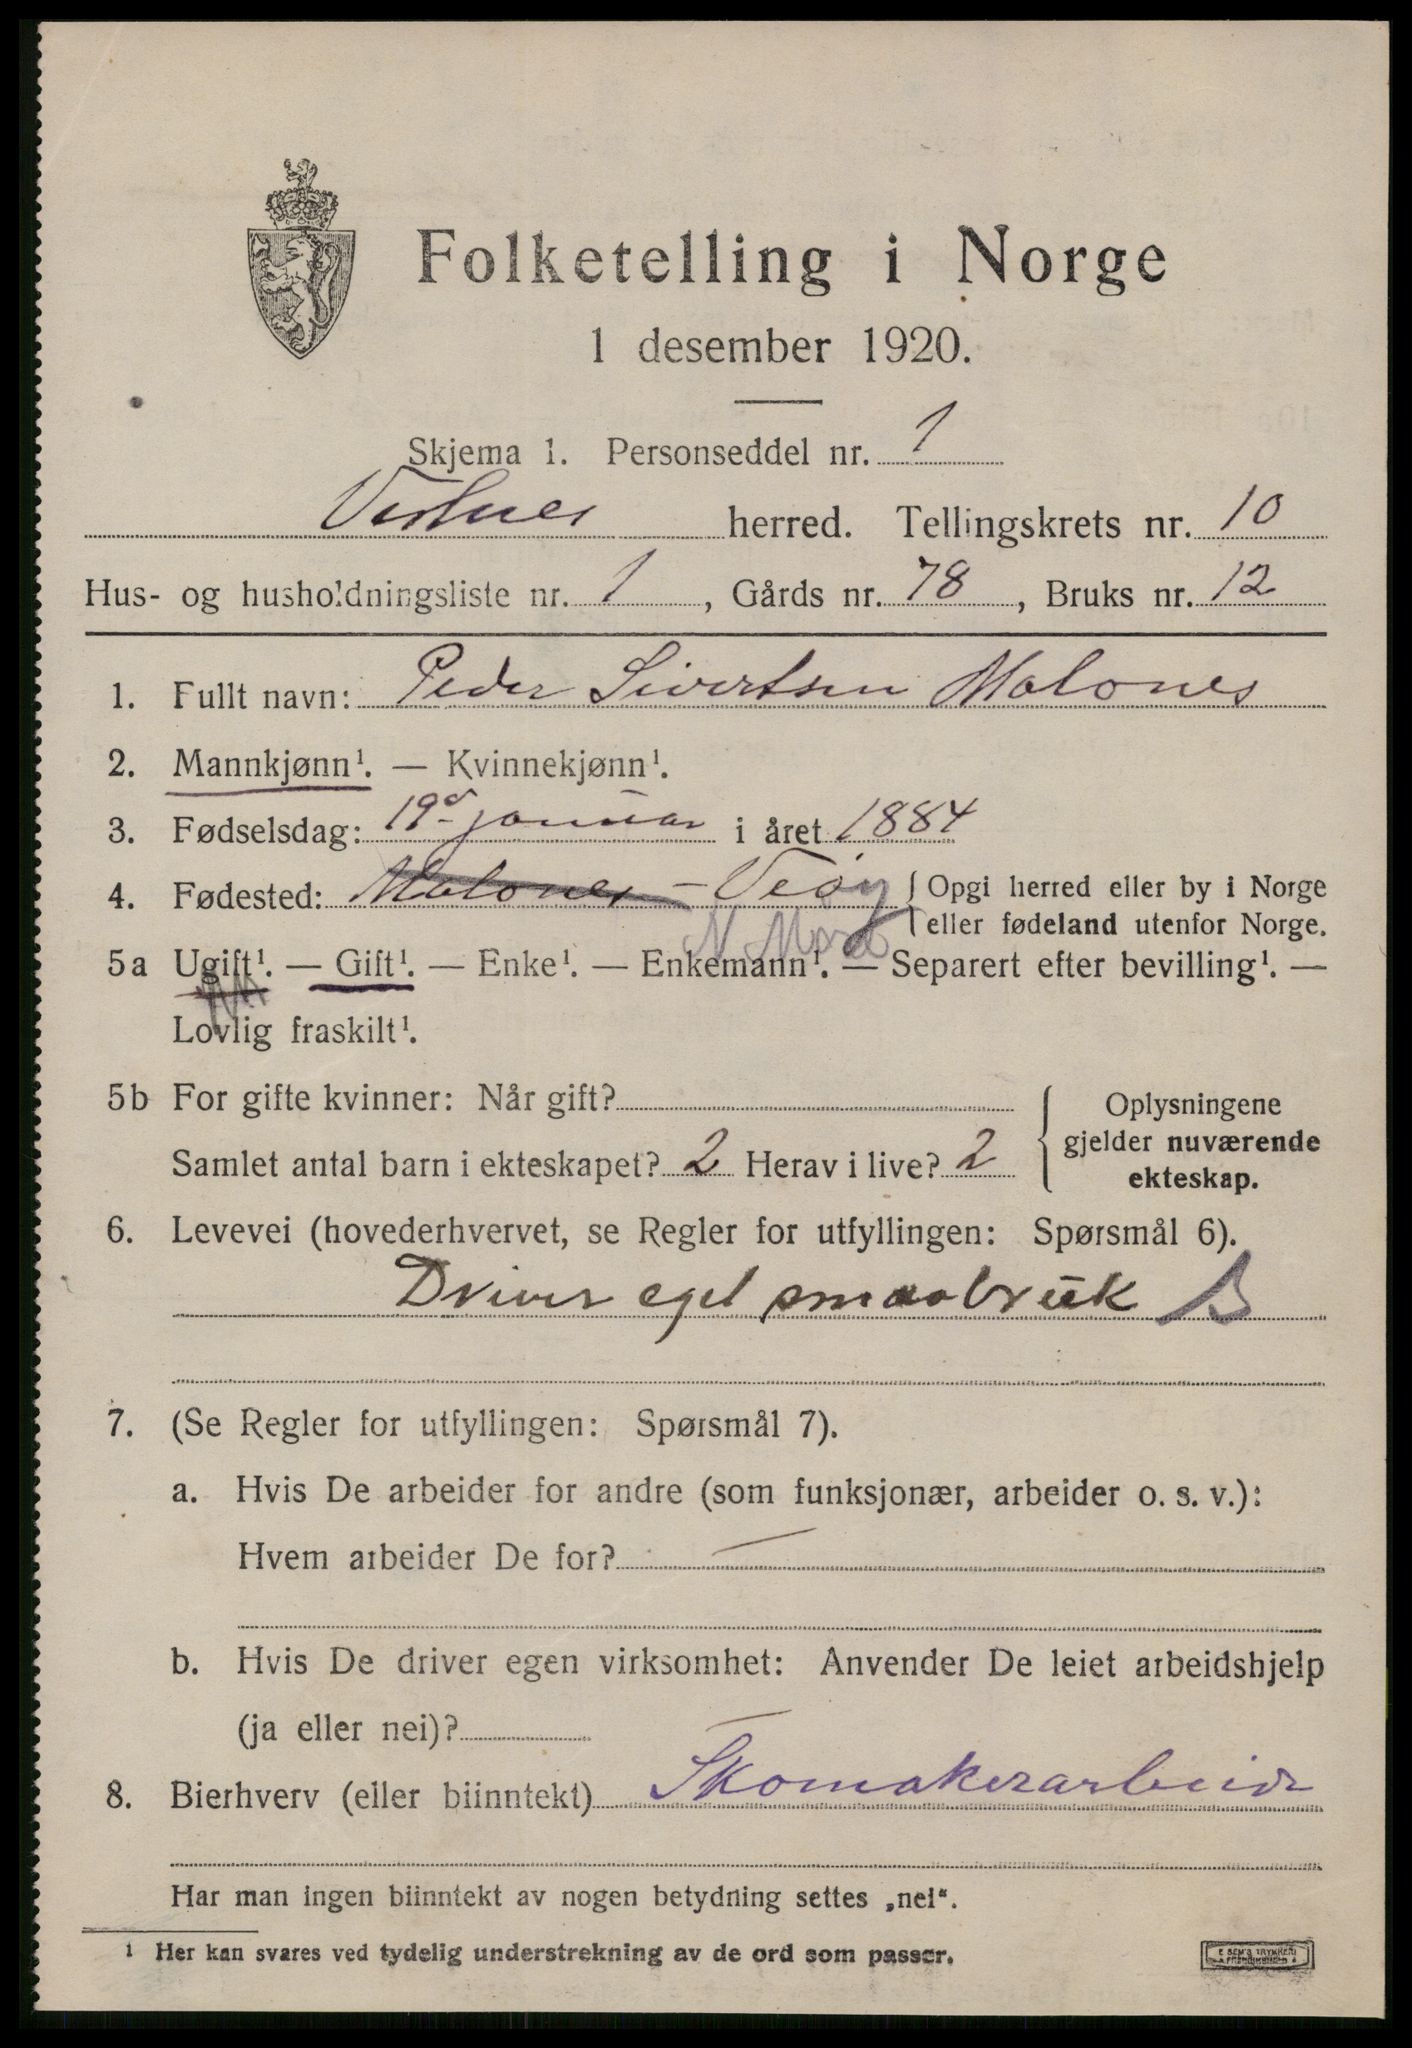 Folketelling i Norge
1 desember 1920.
Skjema 1. Personseddel nr. 1
Vestnes herred. Tellingskrets nr. 10
Hus- og husholdningsliste nr. 1, Gårds nr. 78, Bruks nr. 12
1. Fullt navn: Peder Sivertsen Malones
2. Mannkjønn¹. — Kvinnekjønn¹.
3. Fødselsdag: 19d januar i året 1884
4. Fødested: Malones - Veøy { Opgi herred eller by i Norge
eller fødeland utenfor Norge.
5a Ugift¹. — Gift¹. — Enke¹. — Enkemann¹. — Separert efter bevilling¹. —
Lovlig fraskilt¹.
5b For gifte kvinner: Når gift?
Samlet antal barn i ekteskapet? 2 Herav i live? 2
Oplysningene
gjelder nuværende
ekteskap.
6. Levevei (hovederhvervet, se Regler for utfyllingen: Spørsmål 6).
Driver eget smaabruk B
7. (Se Regler for utfyllingen: Spørsmål 7).
a. Hvis De arbeider for andre (som funksjonær, arbeider o. s. v.):
Hvem arbeider De for? —
b. Hvis De driver egen virksomhet: Anvender De leiet arbeidshjelp
(ja eller nei)?
8. Bierhverv (eller biinntekt) Skomakerarbeide
Har man ingen biinntekt av nogen betydning settes „nei“.
¹ Her kan svares ved tydelig understrekning av de ord som passer.